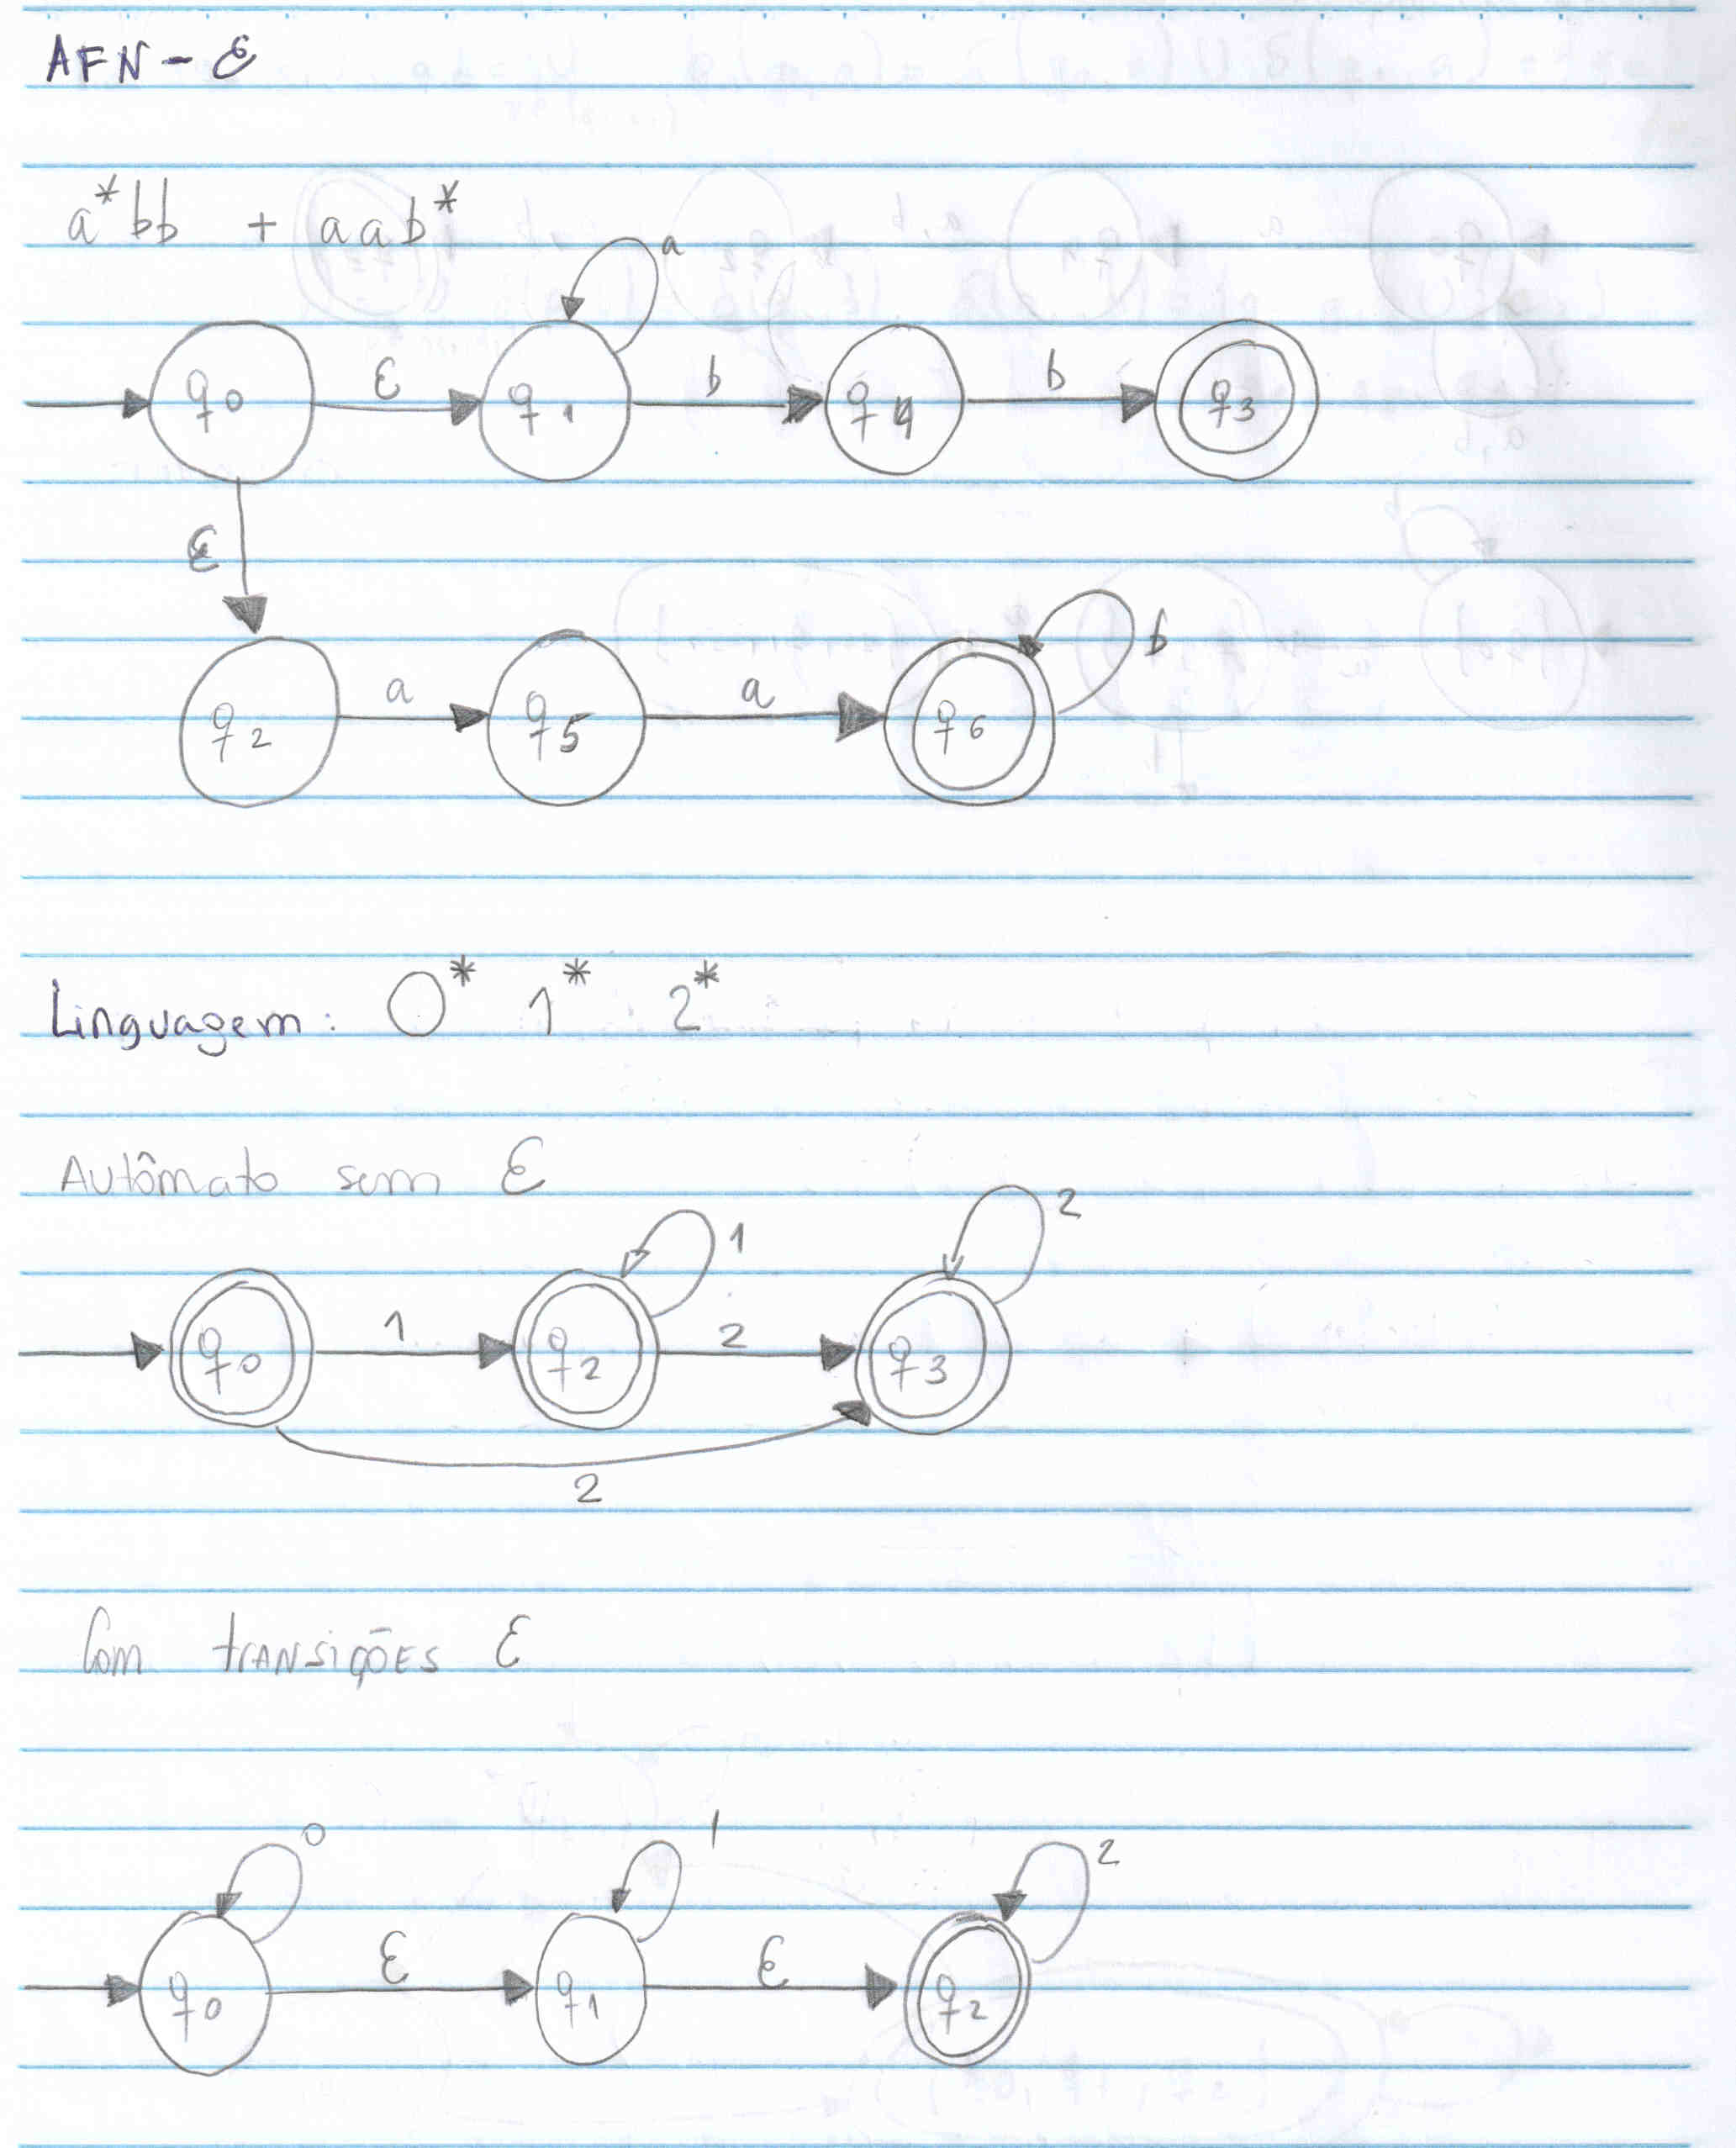 AFN - ε
a*bb + aab*
a
q0 ε q1 b q4 b q3
ε
b
q2 a q5 a q6
Linguagem: 0* 1* 2*
Autômato sem ε
1 2
q0 1 q2 2 q3
2
Com transições ε
0 1 2
q0 ε q1 ε q2